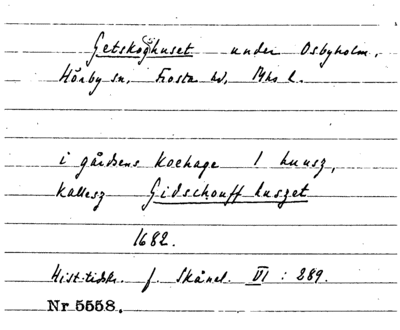 Getskoghuset under Osbyholm,
Hörby sn, Frosta hd, Mhs l.
i gårdsens Koehage 1 huusz,
kallesz Gidschouff huszet
1682.
Hist. tidskr. f. Skånel. VI : 289.
Nr 5558.